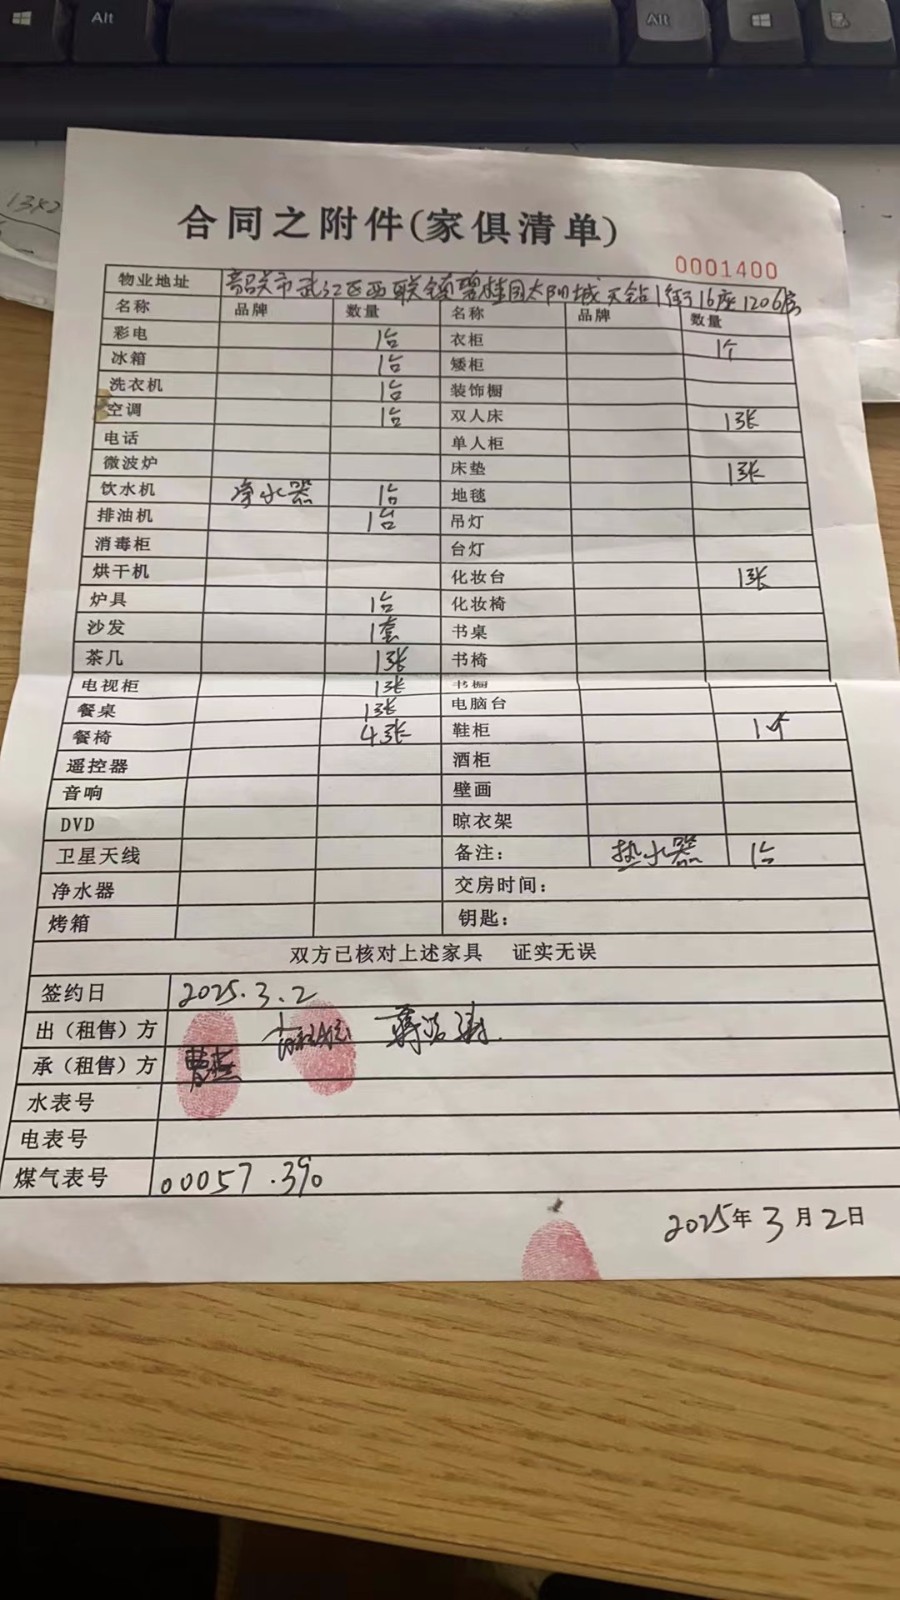 Alt
Alt
合同之附件(家俱清单)
0001400
物业地址 韶关市武江区西联镇碧桂园太阳城天钻1街16座1206房
名称 品牌 数量 名称 品牌 数量
彩电 1台 衣柜 1个
冰箱 1台 矮柜
洗衣机 1台 装饰橱
空调 1台 双人床 1张
电话 单人柜
微波炉 床垫 1张
饮水机 净水器 1台 地毯
排油机 1台 吊灯
消毒柜 台灯
烘干机 化妆台 1张
炉具 1台 化妆椅
沙发 1套 书桌
茶几 1张 书椅
电视柜 1张 书橱
餐桌 1张 电脑台
餐椅 4张 鞋柜 1个
遥控器 酒柜
音响 壁画
DVD 晾衣架
卫星天线 备注: 热水器 1台
净水器 交房时间:
烤箱 钥匙:
双方已核对上述家具 证实无误
签约日 2025.3.2
出（租售）方
承（租售）方
水表号
电表号
煤气表号 00057.390
2025年3月2日